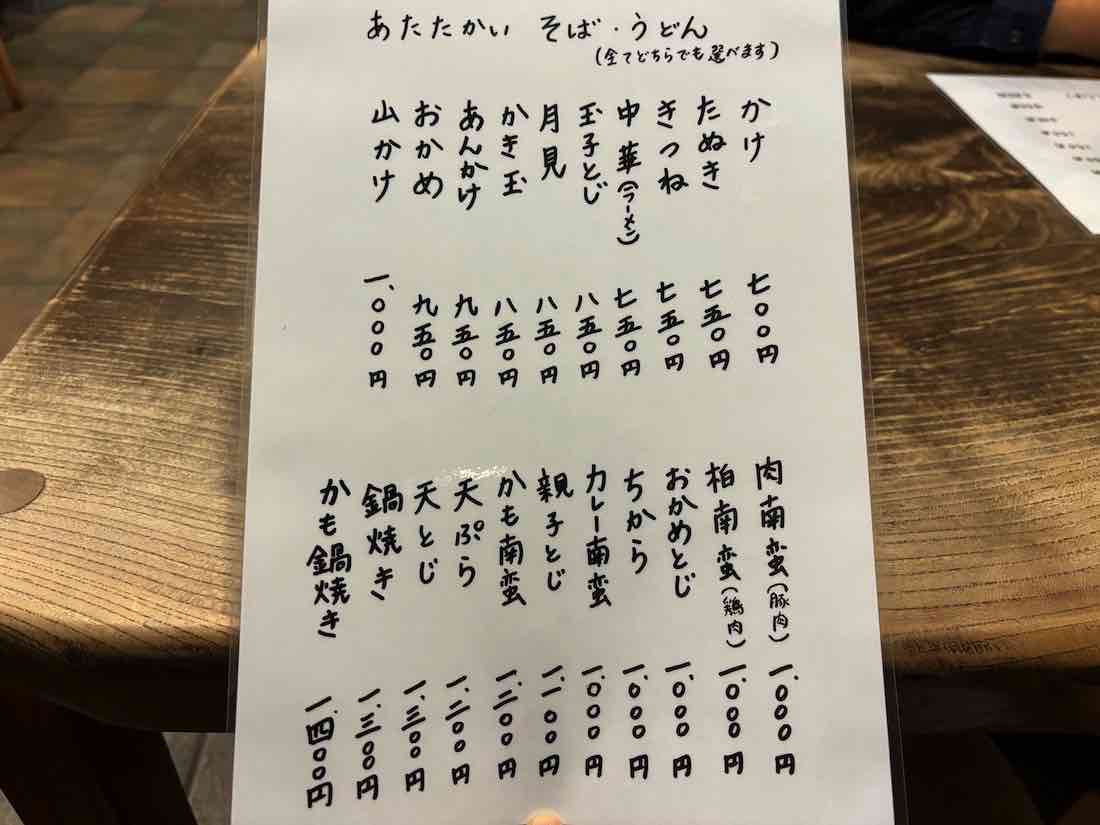 あたたかい そば・うどん
(全てどちらでも選べます)
かけ 七〇〇円
たぬき 七五〇円
きつね 七五〇円
中華(ラーメン) 七五〇円
玉子とじ 八五〇円
月見 八五〇円
かき玉 八五〇円
あんかけ 九五〇円
おかめ 九五〇円
山かけ 一、〇〇〇円
肉南蛮(豚肉) 一、〇〇〇円
柏南蛮(鶏肉) 一、〇〇〇円
おかめとじ 一、〇〇〇円
ちから 一、〇〇〇円
カレー南蛮 一、〇〇〇円
親子とじ 一、一〇〇円
かも南蛮 一、二〇〇円
天ぷら 一、二〇〇円
天とじ 一、三〇〇円
鍋焼き 一、三〇〇円
かも鍋焼き 一、四〇〇円